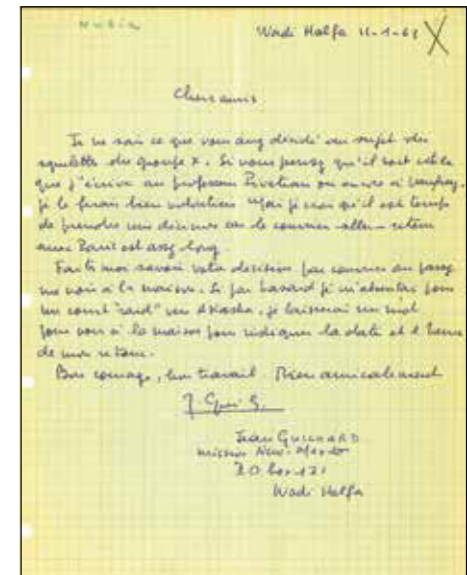 Nubia
Wadi Halfa 11-1-63 X
Chers amis
Je ne sais ce que vous avez décidé au sujet des
squelettes du groupe X. Si vous pensez qu'il soit utile
que j'écrive au professeur Piveteau ou encore à
je le ferais bien volontiers. Mais je crois qu'il est temps
de prendre une décision car le courrier aller-retour
avec Paris est assez long.
Faites moi savoir votre décision par courrier ou passez
me voir à la maison. Si par hasard je m'absentais pour
un court "raid" vers Akasha, je laisserai un mot
pour vous à la maison pour indiquer la date et l'heure
de mon retour.
Bon courage, bon travail Bien amicalement
J. Gui
Jean GUICHARD
mission New-Mexico
P.O Box 121
Wadi Halfa